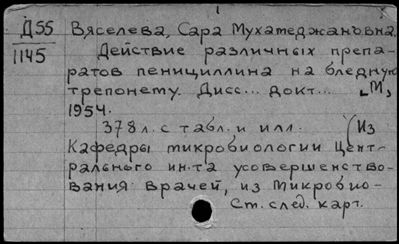 Д55 Вяселева, Сара Мухамеджановна.
1145 Действие различных препа-
ратов пенициллина на бледную
трепонему. Дисс... докт... [М],
1954.
378 л. с табл. и илл. (Из
Кафедры микробиологии Цент-
рального ин-та усовершенство-
вания врачей, из Микробио-
См. след. карт.